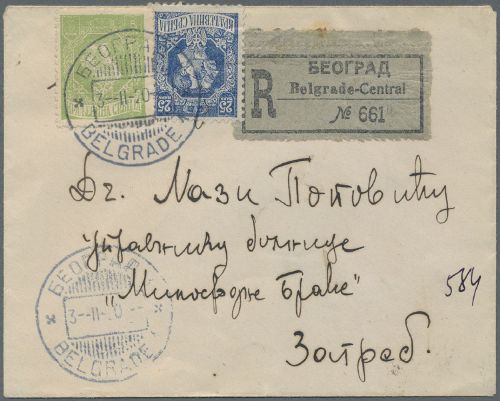 БЕОГРАД
BELGRADE
3-II-20
КРАЉЕВИНА СРБИЈА
25 25
R
БЕОГРАД
Belgrade-Central
№ 661
Др. Лази Поповићу
управнику болнице
"Милосрдне Браће"
584
Загреб.
БЕОГРАД
3-II-20
BELGRADE